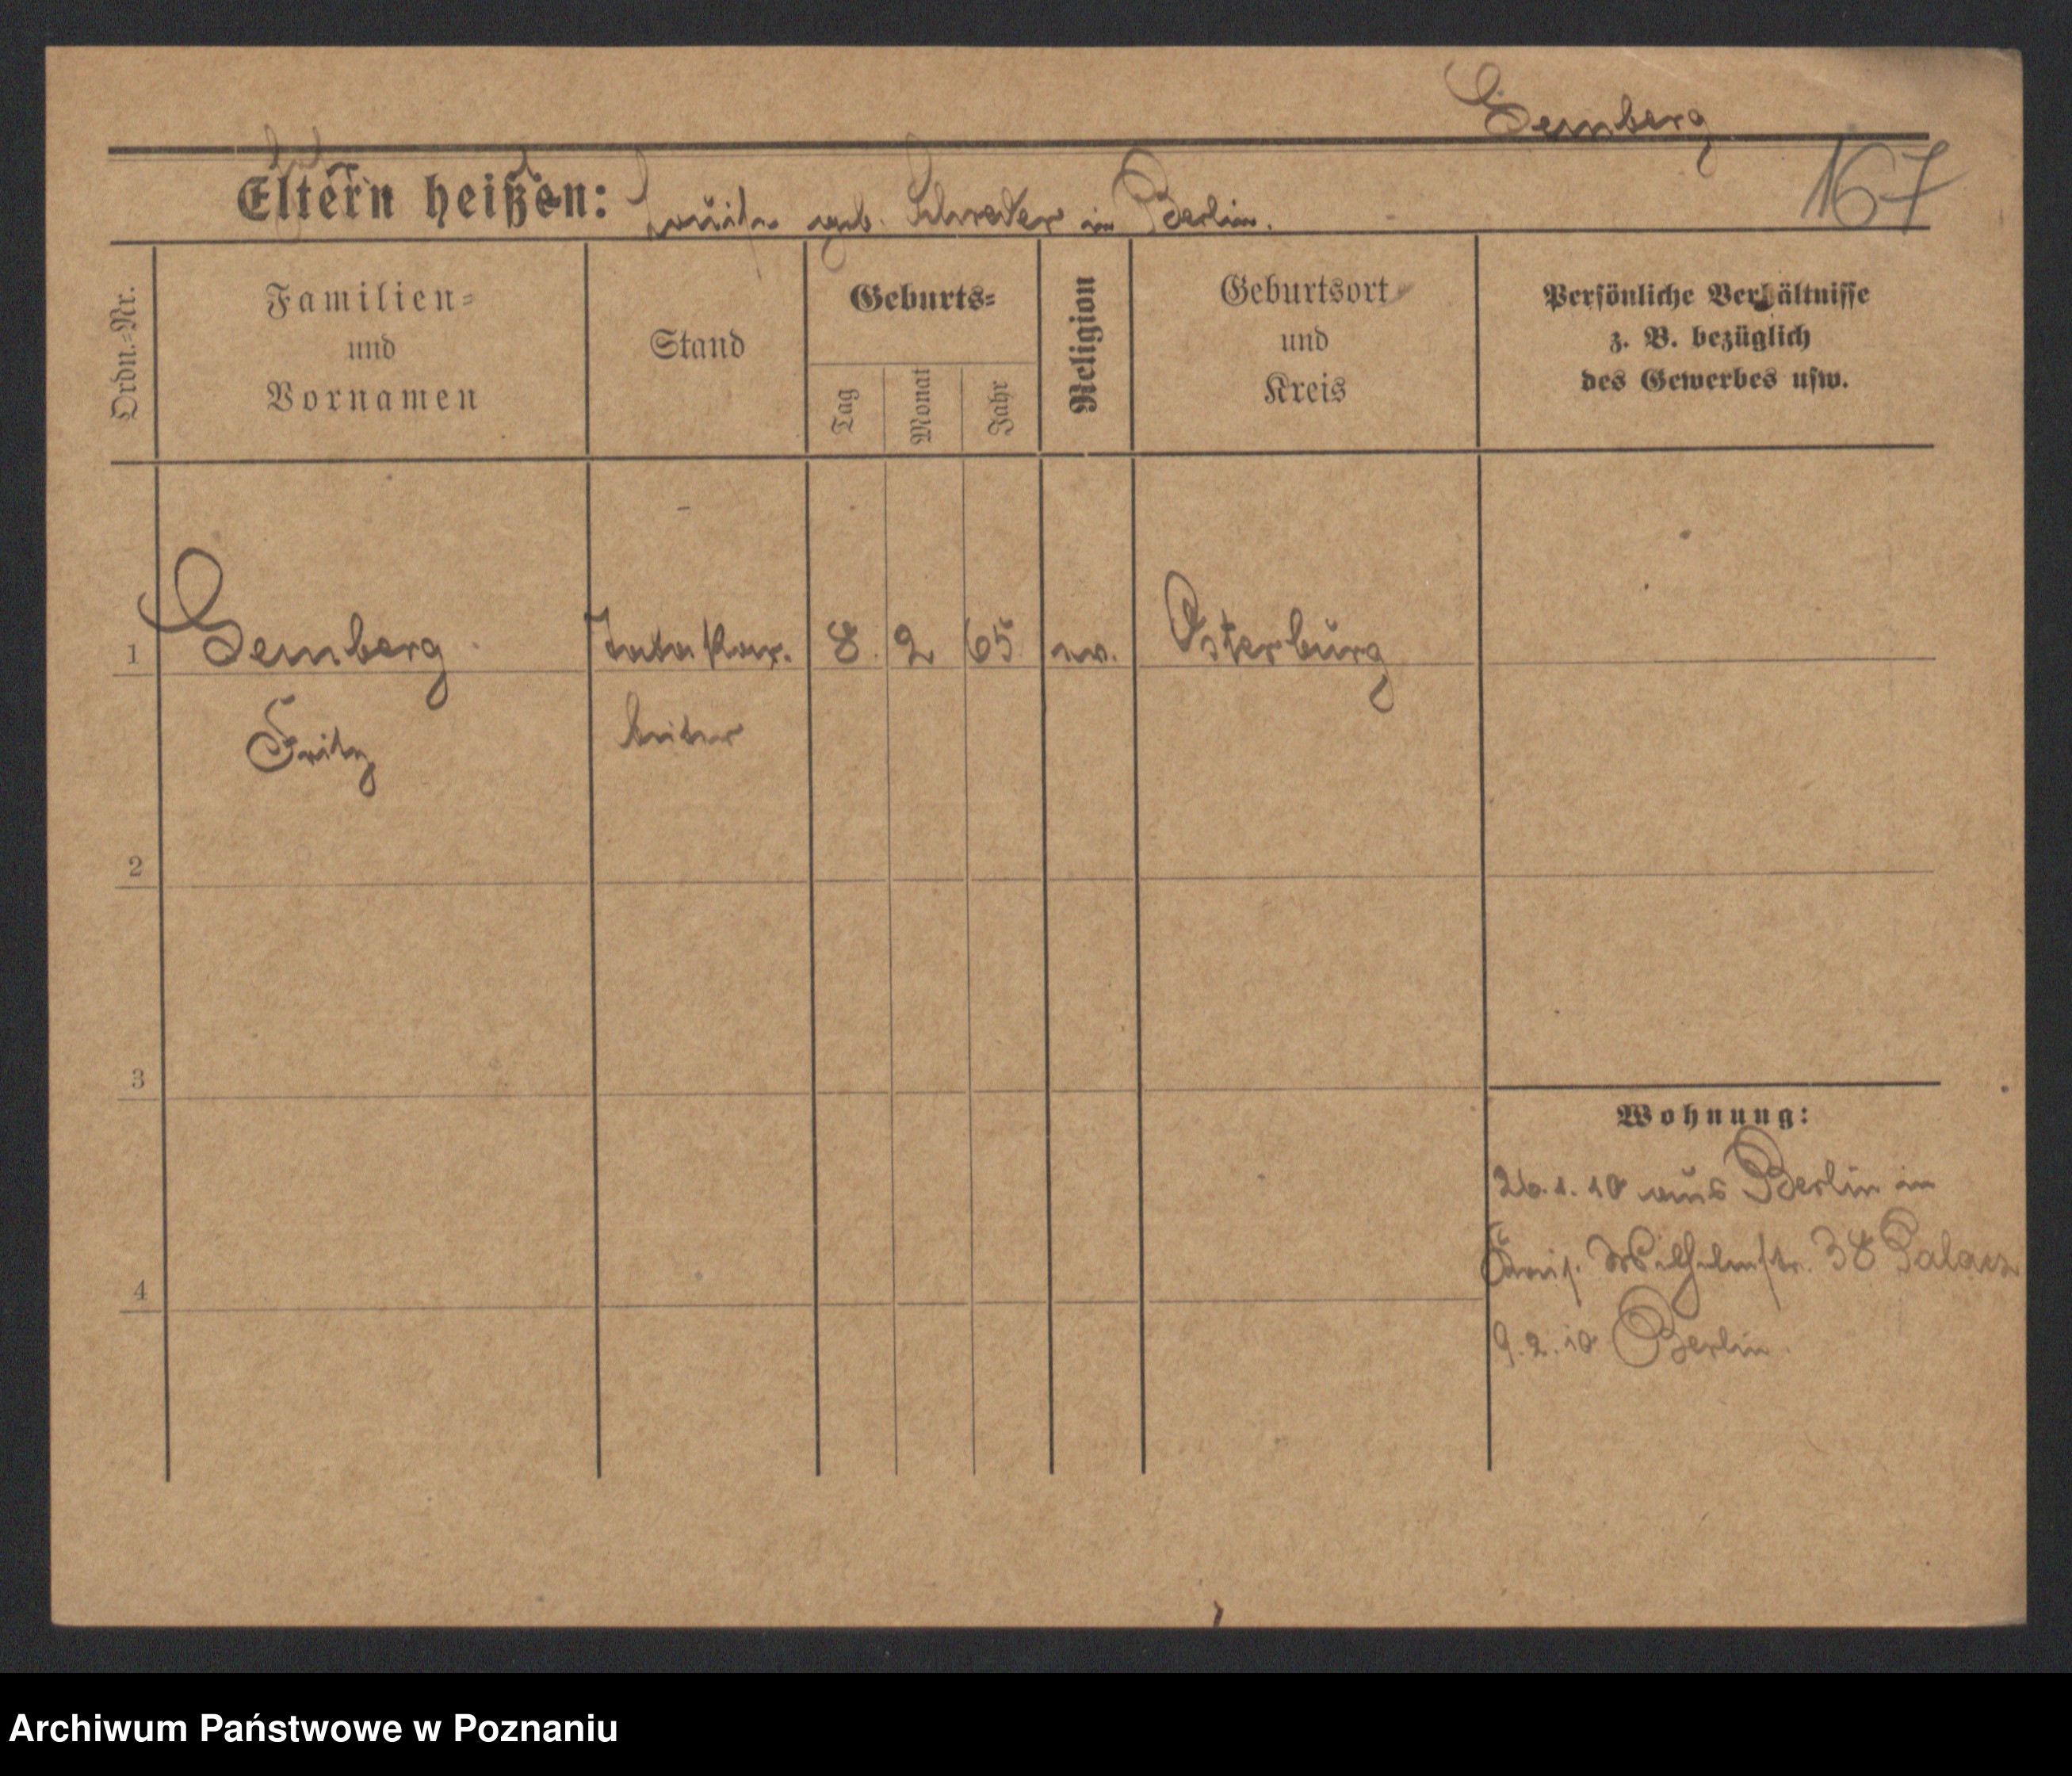 Gemberg
167
Eltern heißen: geb. Schreder in Berlin.
Ordn.-Nr.
Familien-
und
Vornamen
Stand
Geburts-
Tag
Monat
Jahr
Religion
Geburtsort
und
Kreis
Persönliche Verhältnisse
z. B. bezüglich
des Gewerbes usw.
1
Gemberg
8. 2 65
ev.
Osterburg
Fritz
2
3
4
Wohnung:
26.1.10 aus Berlin in
Wilhelmstr. 38
9.2.10 Berlin.
Archiwum Państwowe w Poznaniu